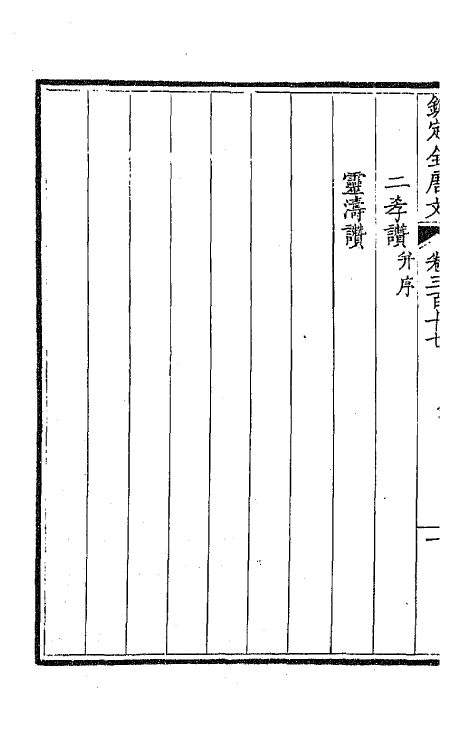 欽定全唐文 卷三百十七 一
二孝讚并序
靈濤讚